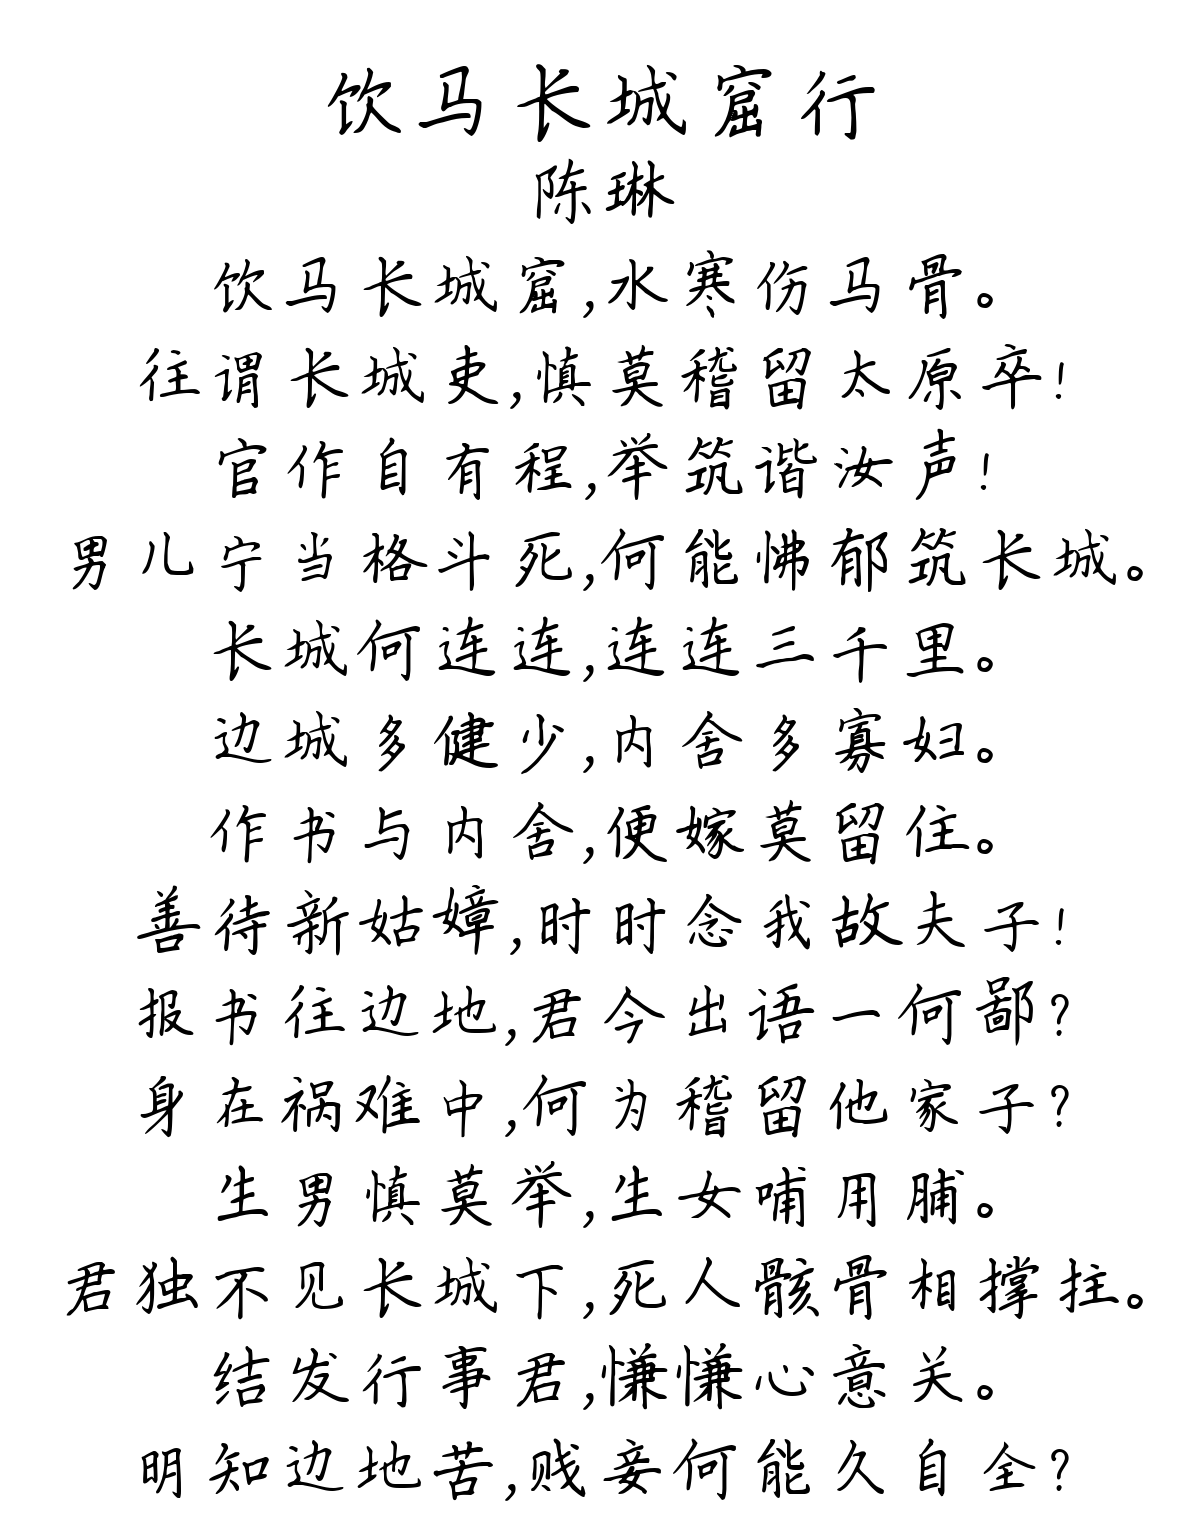 饮马长城窟行
陈琳
饮马长城窟,水寒伤马骨。
往谓长城吏,慎莫稽留太原卒!
官作自有程,举筑谐汝声!
男儿宁当格斗死,何能怫郁筑长城。
长城何连连,连连三千里。
边城多健少,内舍多寡妇。
作书与内舍,便嫁莫留住。
善待新姑嫜,时时念我故夫子!
报书往边地,君今出语一何鄙?
身在祸难中,何为稽留他家子?
生男慎莫举,生女哺用脯。
君独不见长城下,死人骸骨相撑拄。
结发行事君,慊慊心意关。
明知边地苦,贱妾何能久自全?